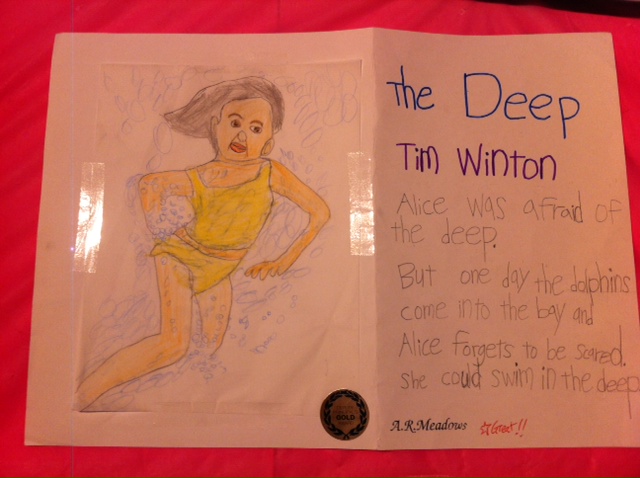 the Deep
Tim Winton
Alice was afraid of
the deep.
But one day the dolphins
come into the bay and
Alice forgets to be scared.
she could swim in the deep
GOLD
A.R.Meadows
Great!!